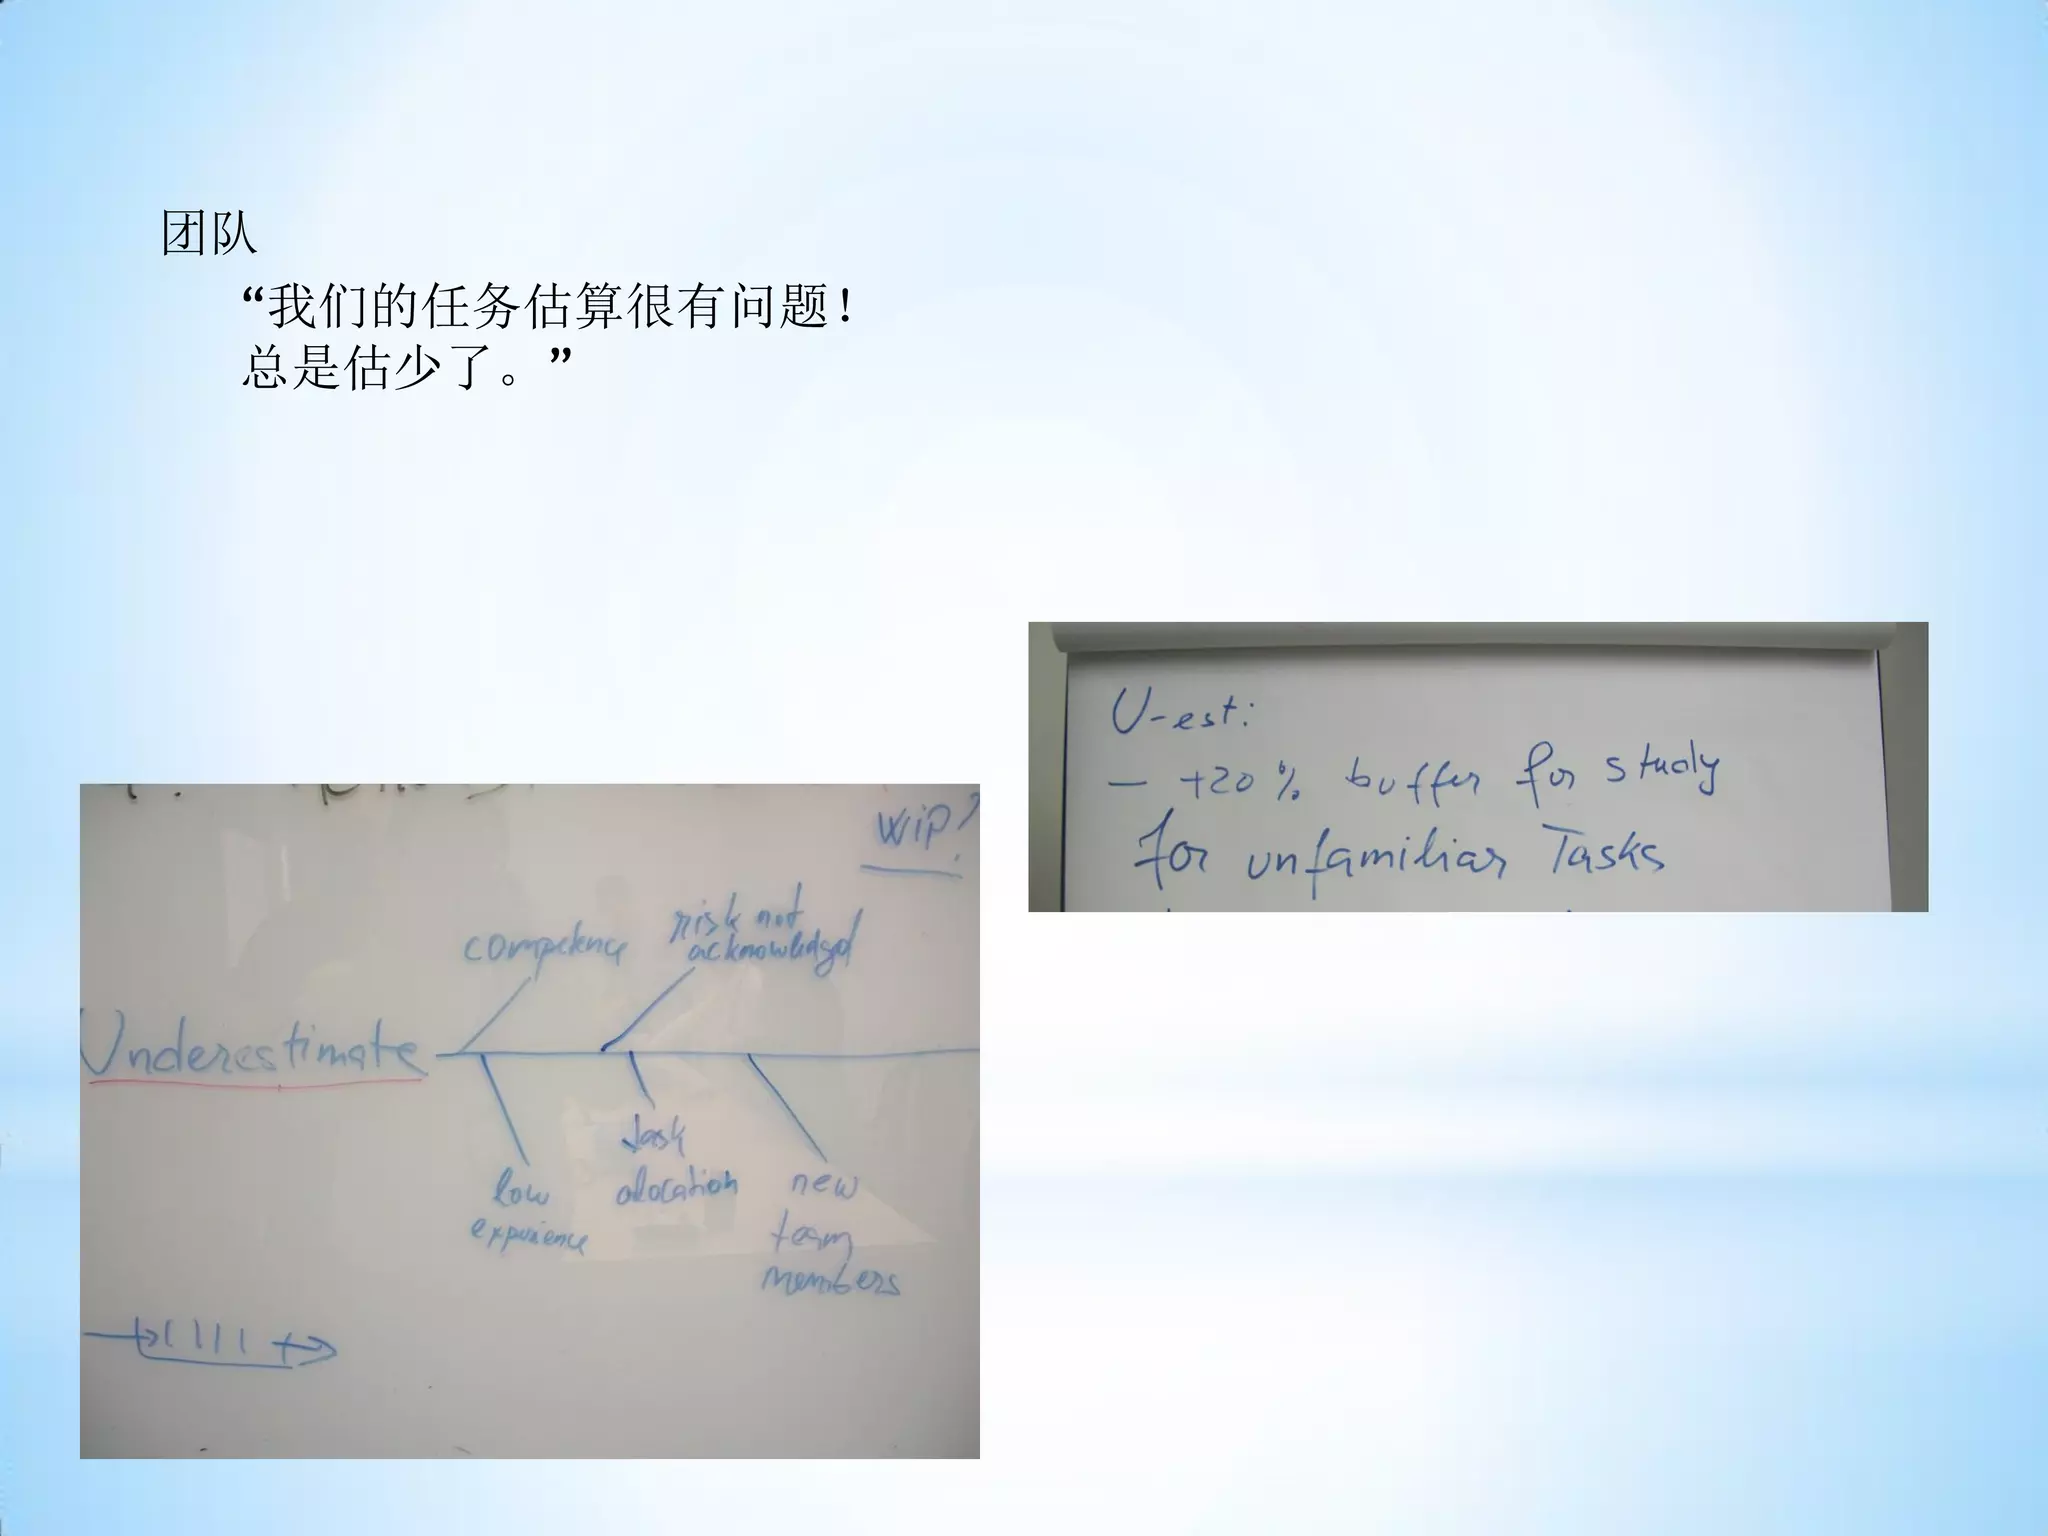 团队
“我们的任务估算很有问题！
总是估少了。”
U-est:
- +20% buffer for study
for unfamiliar Tasks
WiP?
competence
risk not
acknowledged
Underestimate
task
alocation
low
experience
new
team
members